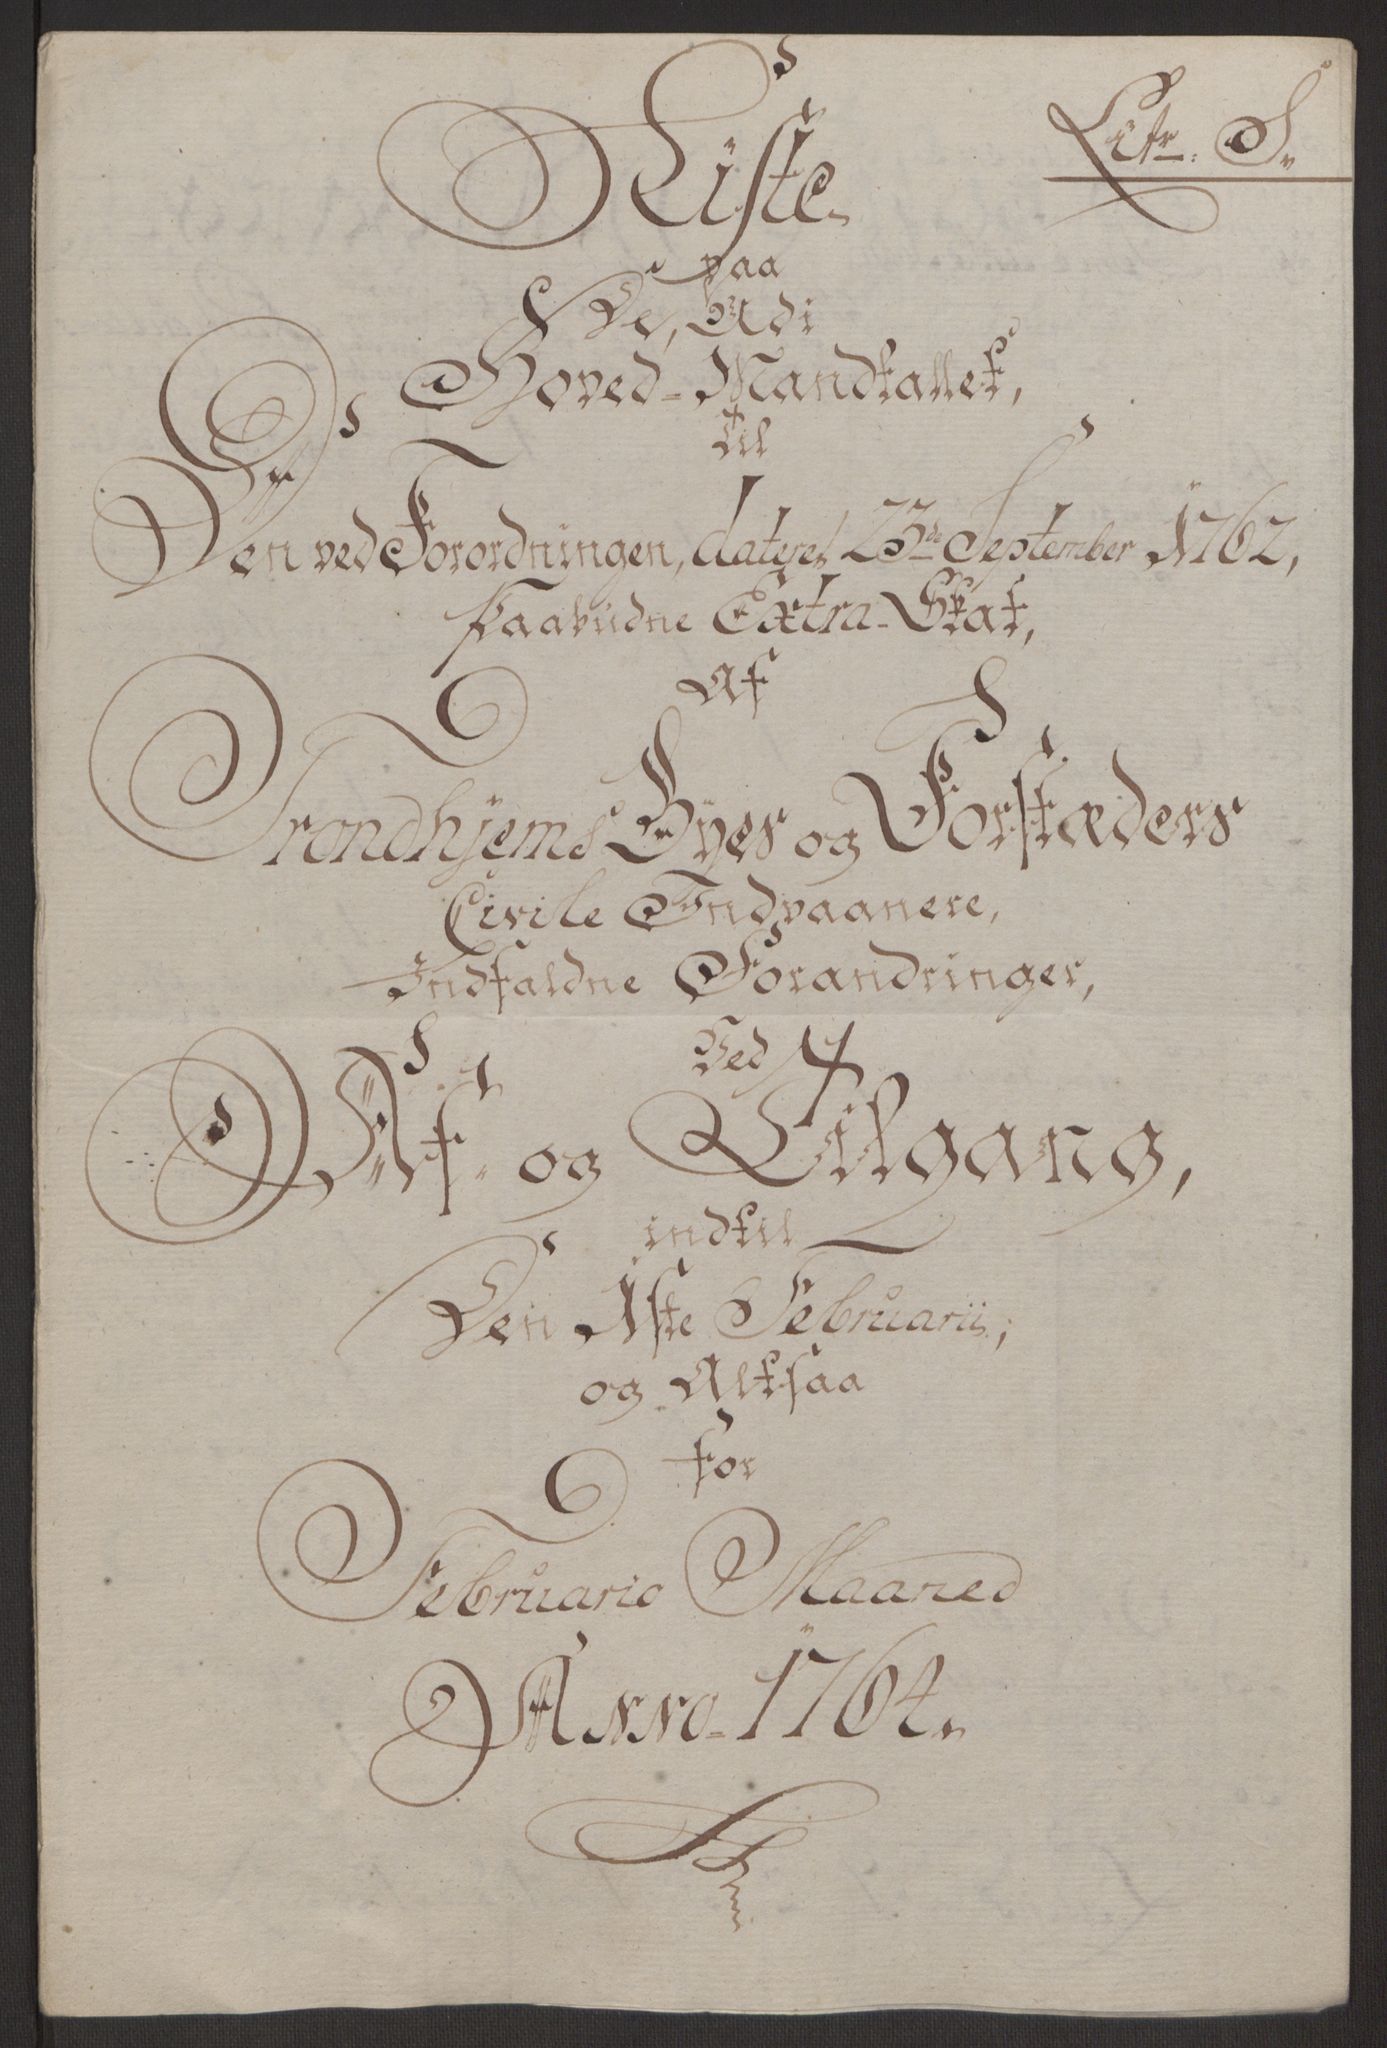 Litr: S.
Liste
paa
De, Udi
Hoved-Mandtallet,
til
Den ved Forordningen, dateret 23de September 1762,
Paabudne Extra-Skat,
Af
Trondhjems Byes og Forstæders
Civile Indvaanere,
Indfaldne Forandringer,
Ved
Af- og Tilgang,
indtil
Den 1ste Februarii;
og Altsaa
for
Februario Maaned
Anno-1764.